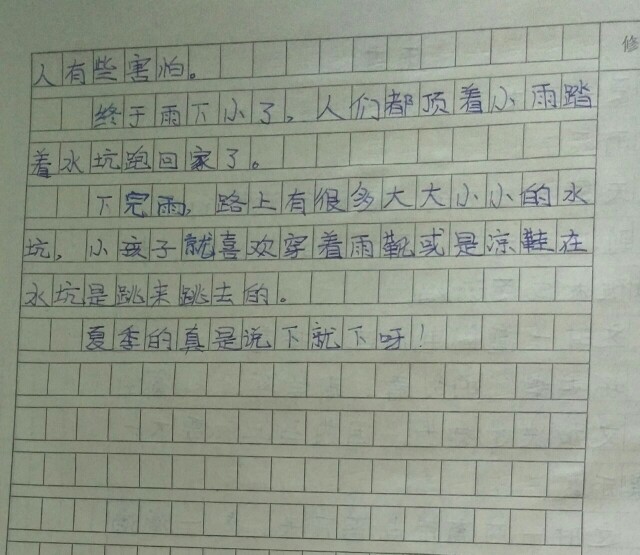 修
人有些害怕。
终于雨下小了，人们都顶着小雨踏
着水坑跑回家了。
下完雨，路上有很多大大小小的水
坑，小孩子就喜欢穿着雨靴或是凉鞋在
水坑是跳来跳去的。
夏季的真是说下就下呀！